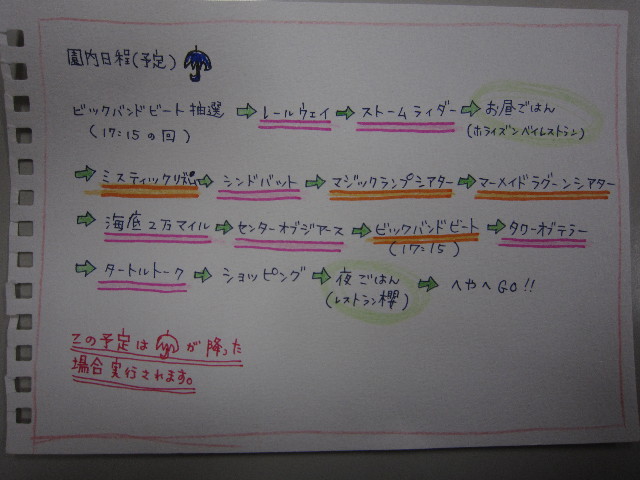 園内日程(予定)
ビックバンドビート抽選 → レールウェイ → ストームライダー → お昼ごはん
(17:15の回) (ホライズンベイレストラン)
→ ミスティックリズム → シンドバット → マジックランプシアター → マーメイドラグーンシアター
→ 海底2万マイル → センターオブジアース → ビックバンドビート → タワーオブテラー
(17:15)
→ タートルトーク → ショッピング → 夜ごはん → へやへGO!!
(レストラン櫻)
この予定は が降った
場合実行されます。